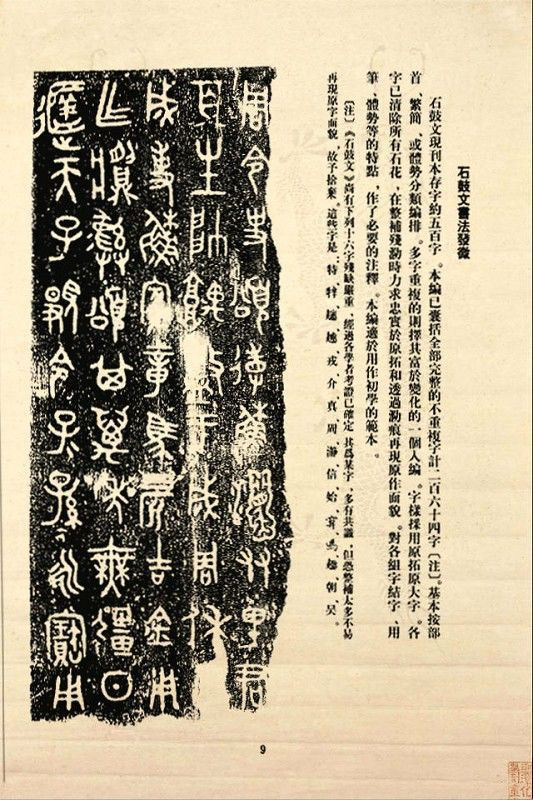 石鼓文書法發微
石鼓文現刊本存字約五百字。本編已囊括全部完整的不重複字計二百六十四字〔注〕。基本按部
首、繁簡、或體勢分類編排。多字重複的則擇其富於變化的一個入編。字樣採用原拓原大字。各
字已清除所有石花，在整補殘泐時力求忠實於原拓和透過泐痕再現原作面貌。對各組字結字、用
筆、體勢等的特點，作了必要的注釋。本編適於用作初學的範本。
〔注〕《石鼓文》尚有下列十六字殘缺嚴重，經過各學者考證已確定其爲某字，多有共識，但恐整補太多不易
再現原字面貌，故予捨棄。這些字是：特、戎、介、真、周、信、始、朝、吴。
令史頌穌友里君
百生帥盩于成周休
成事穌賓章馬四匹吉金用
乍彝頌其萬年無疆日
天子令子孫永寶用
9